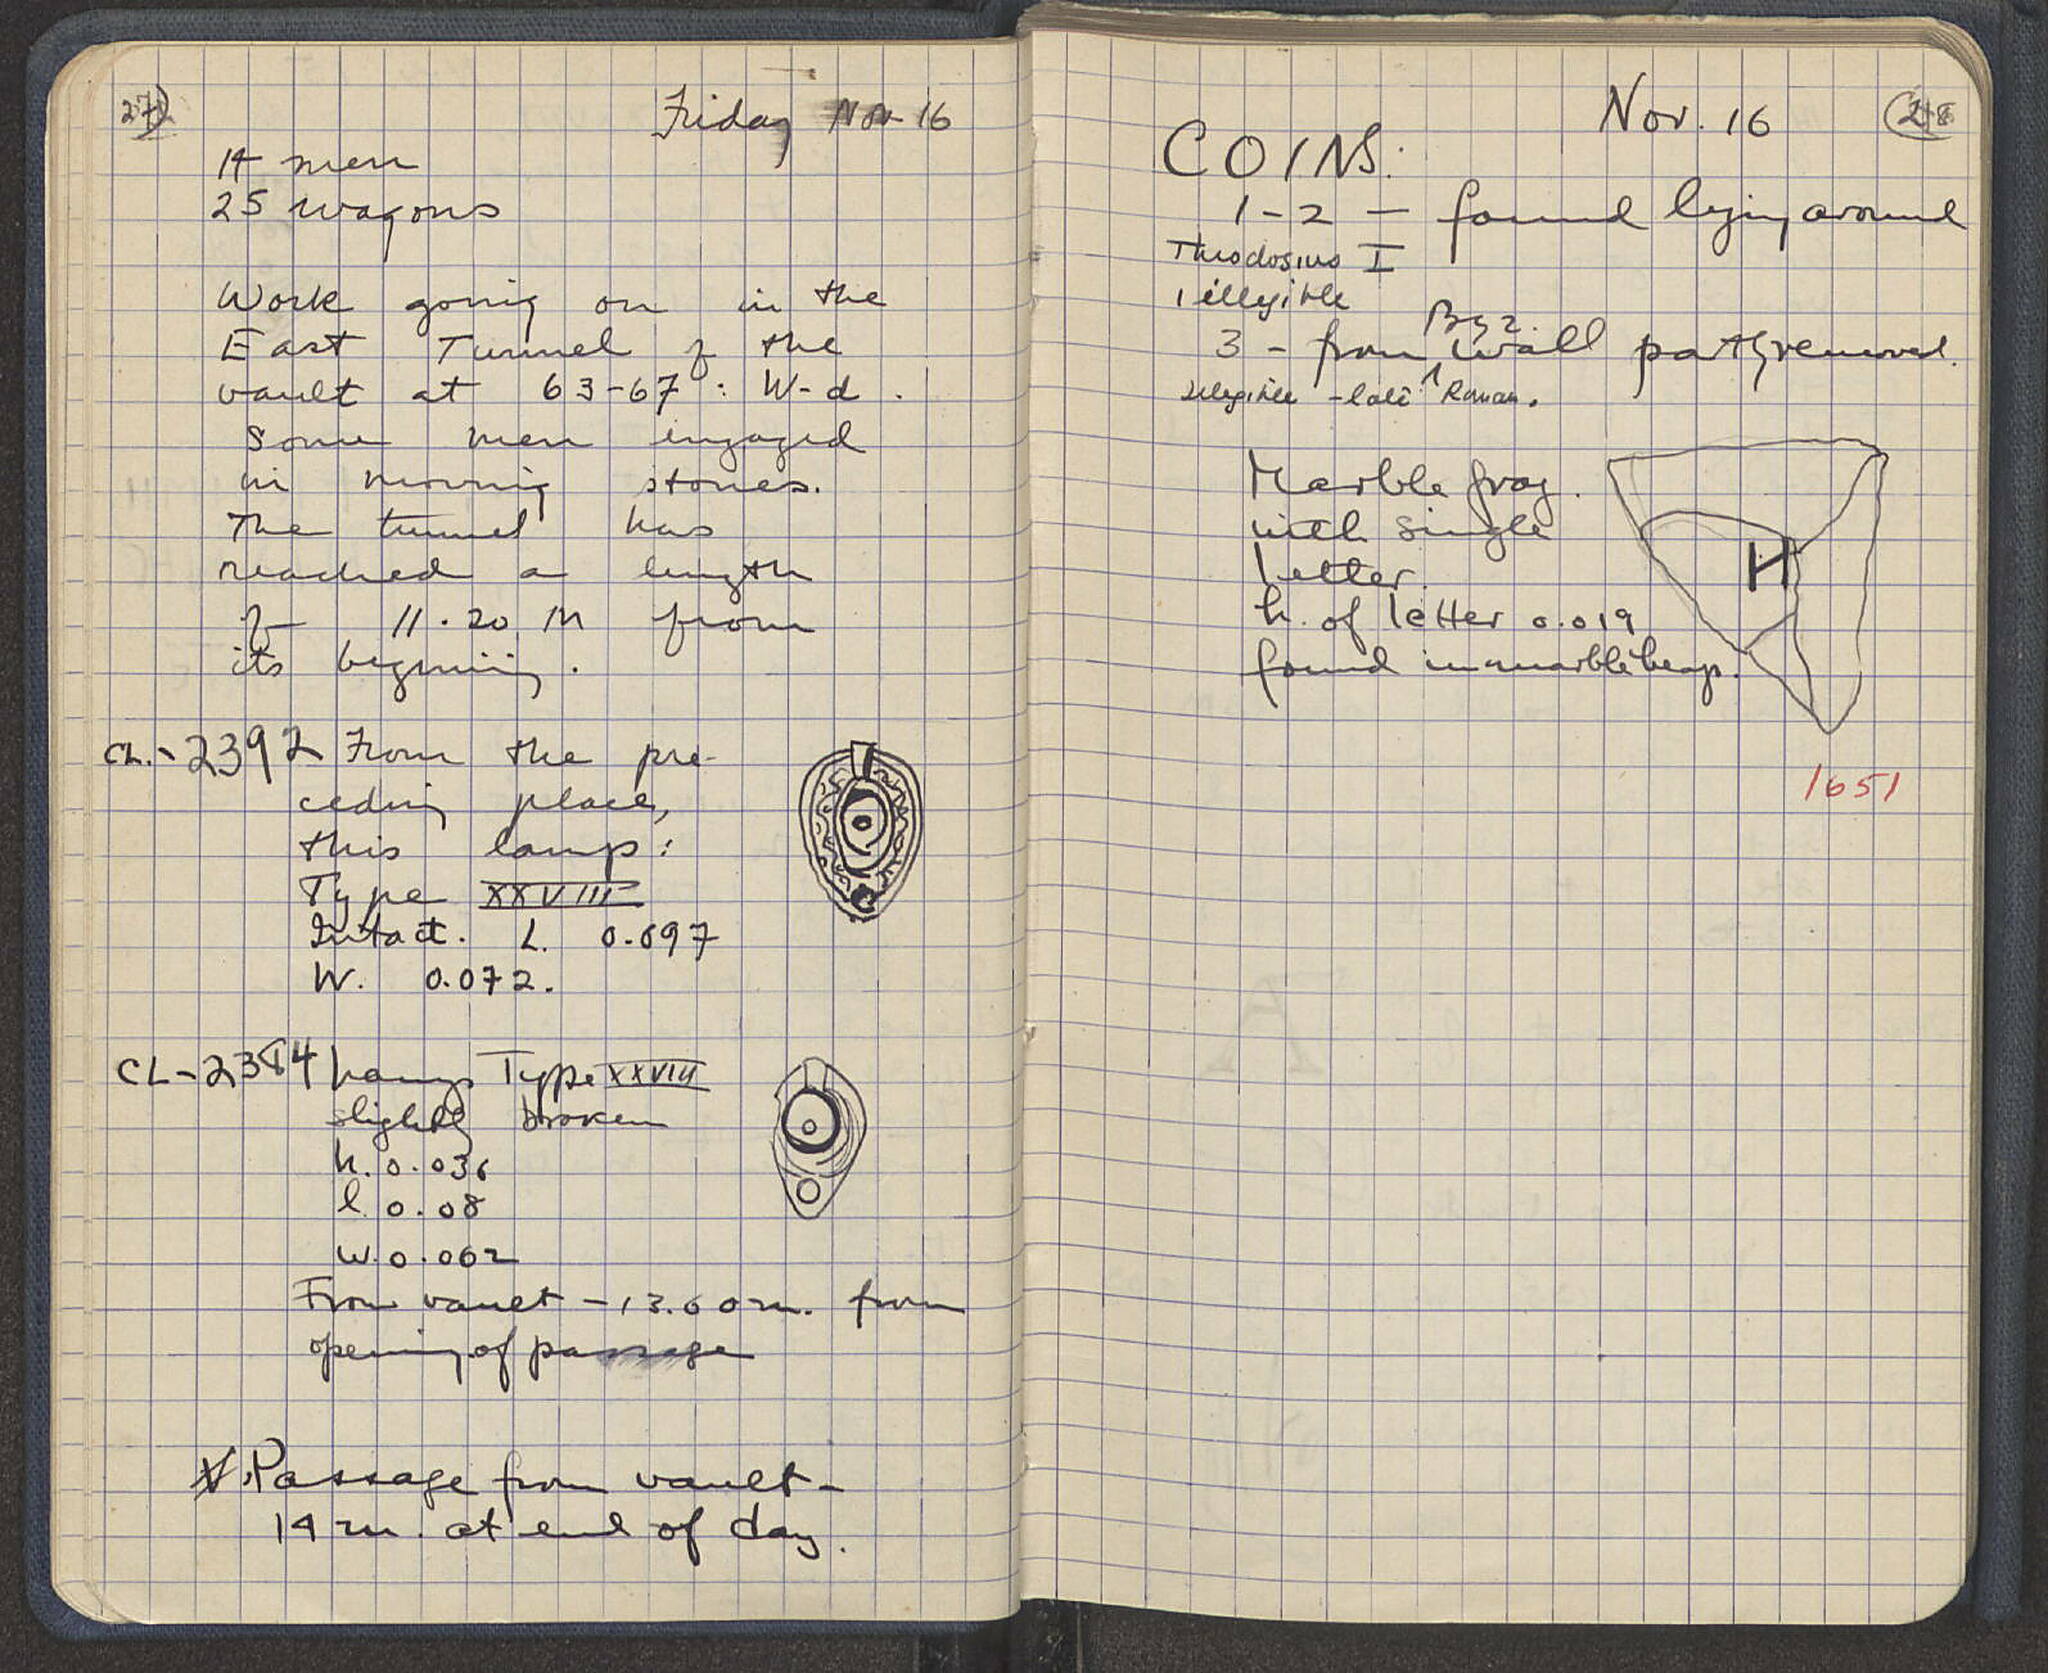 27)
Friday Nov-16
14 men
25 wagons
Work going on in the
East Tunnel of the
vault at 63-67 : W-d.
Some men engaged
in moving stones.
The tunnel has
reached a length
of 11.20 m from
its begining.
CL.-2392 From the pre-
ceding place,
this lamp:
Type XXVIII
Intact. L. 0.097
W. 0.072.
CL-2384 Lamp Type XXVIII
slightly broken
h. 0.036
l. 0.08
w. 0.062
From vault - 13.60 m. from
opening of passage
Passage from vault -
14 m. at end of day.
Nov. 16
(28
COINS:
1-2 — found lying around
Theodosius I
1 illegible
3 - from Byz. wall partly removed.
illegible - late Roman.
Marble frag.
with single
letter.
h. of letter 0.019
found in marble heap.
H
1651